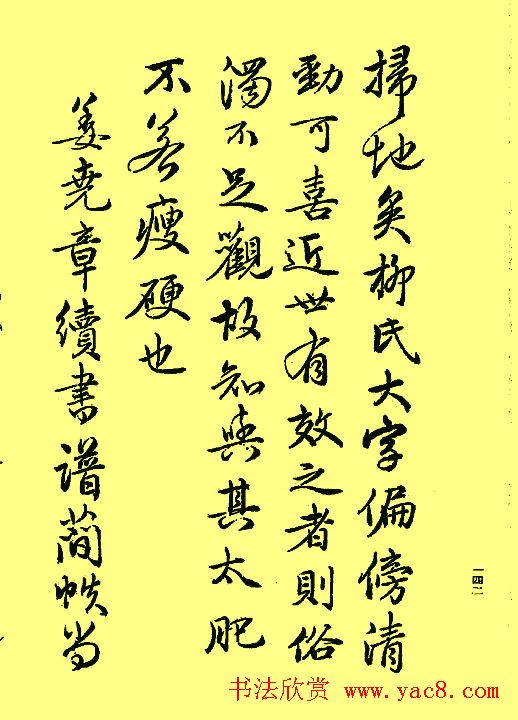 掃地矣柳氏大字偏傍清
勁可喜近世有效之者則俗
濁不足觀故知與其太肥
不若瘦硬也
姜堯章續書譜蘭帙当
一四二
书法欣赏 www.yac8.com